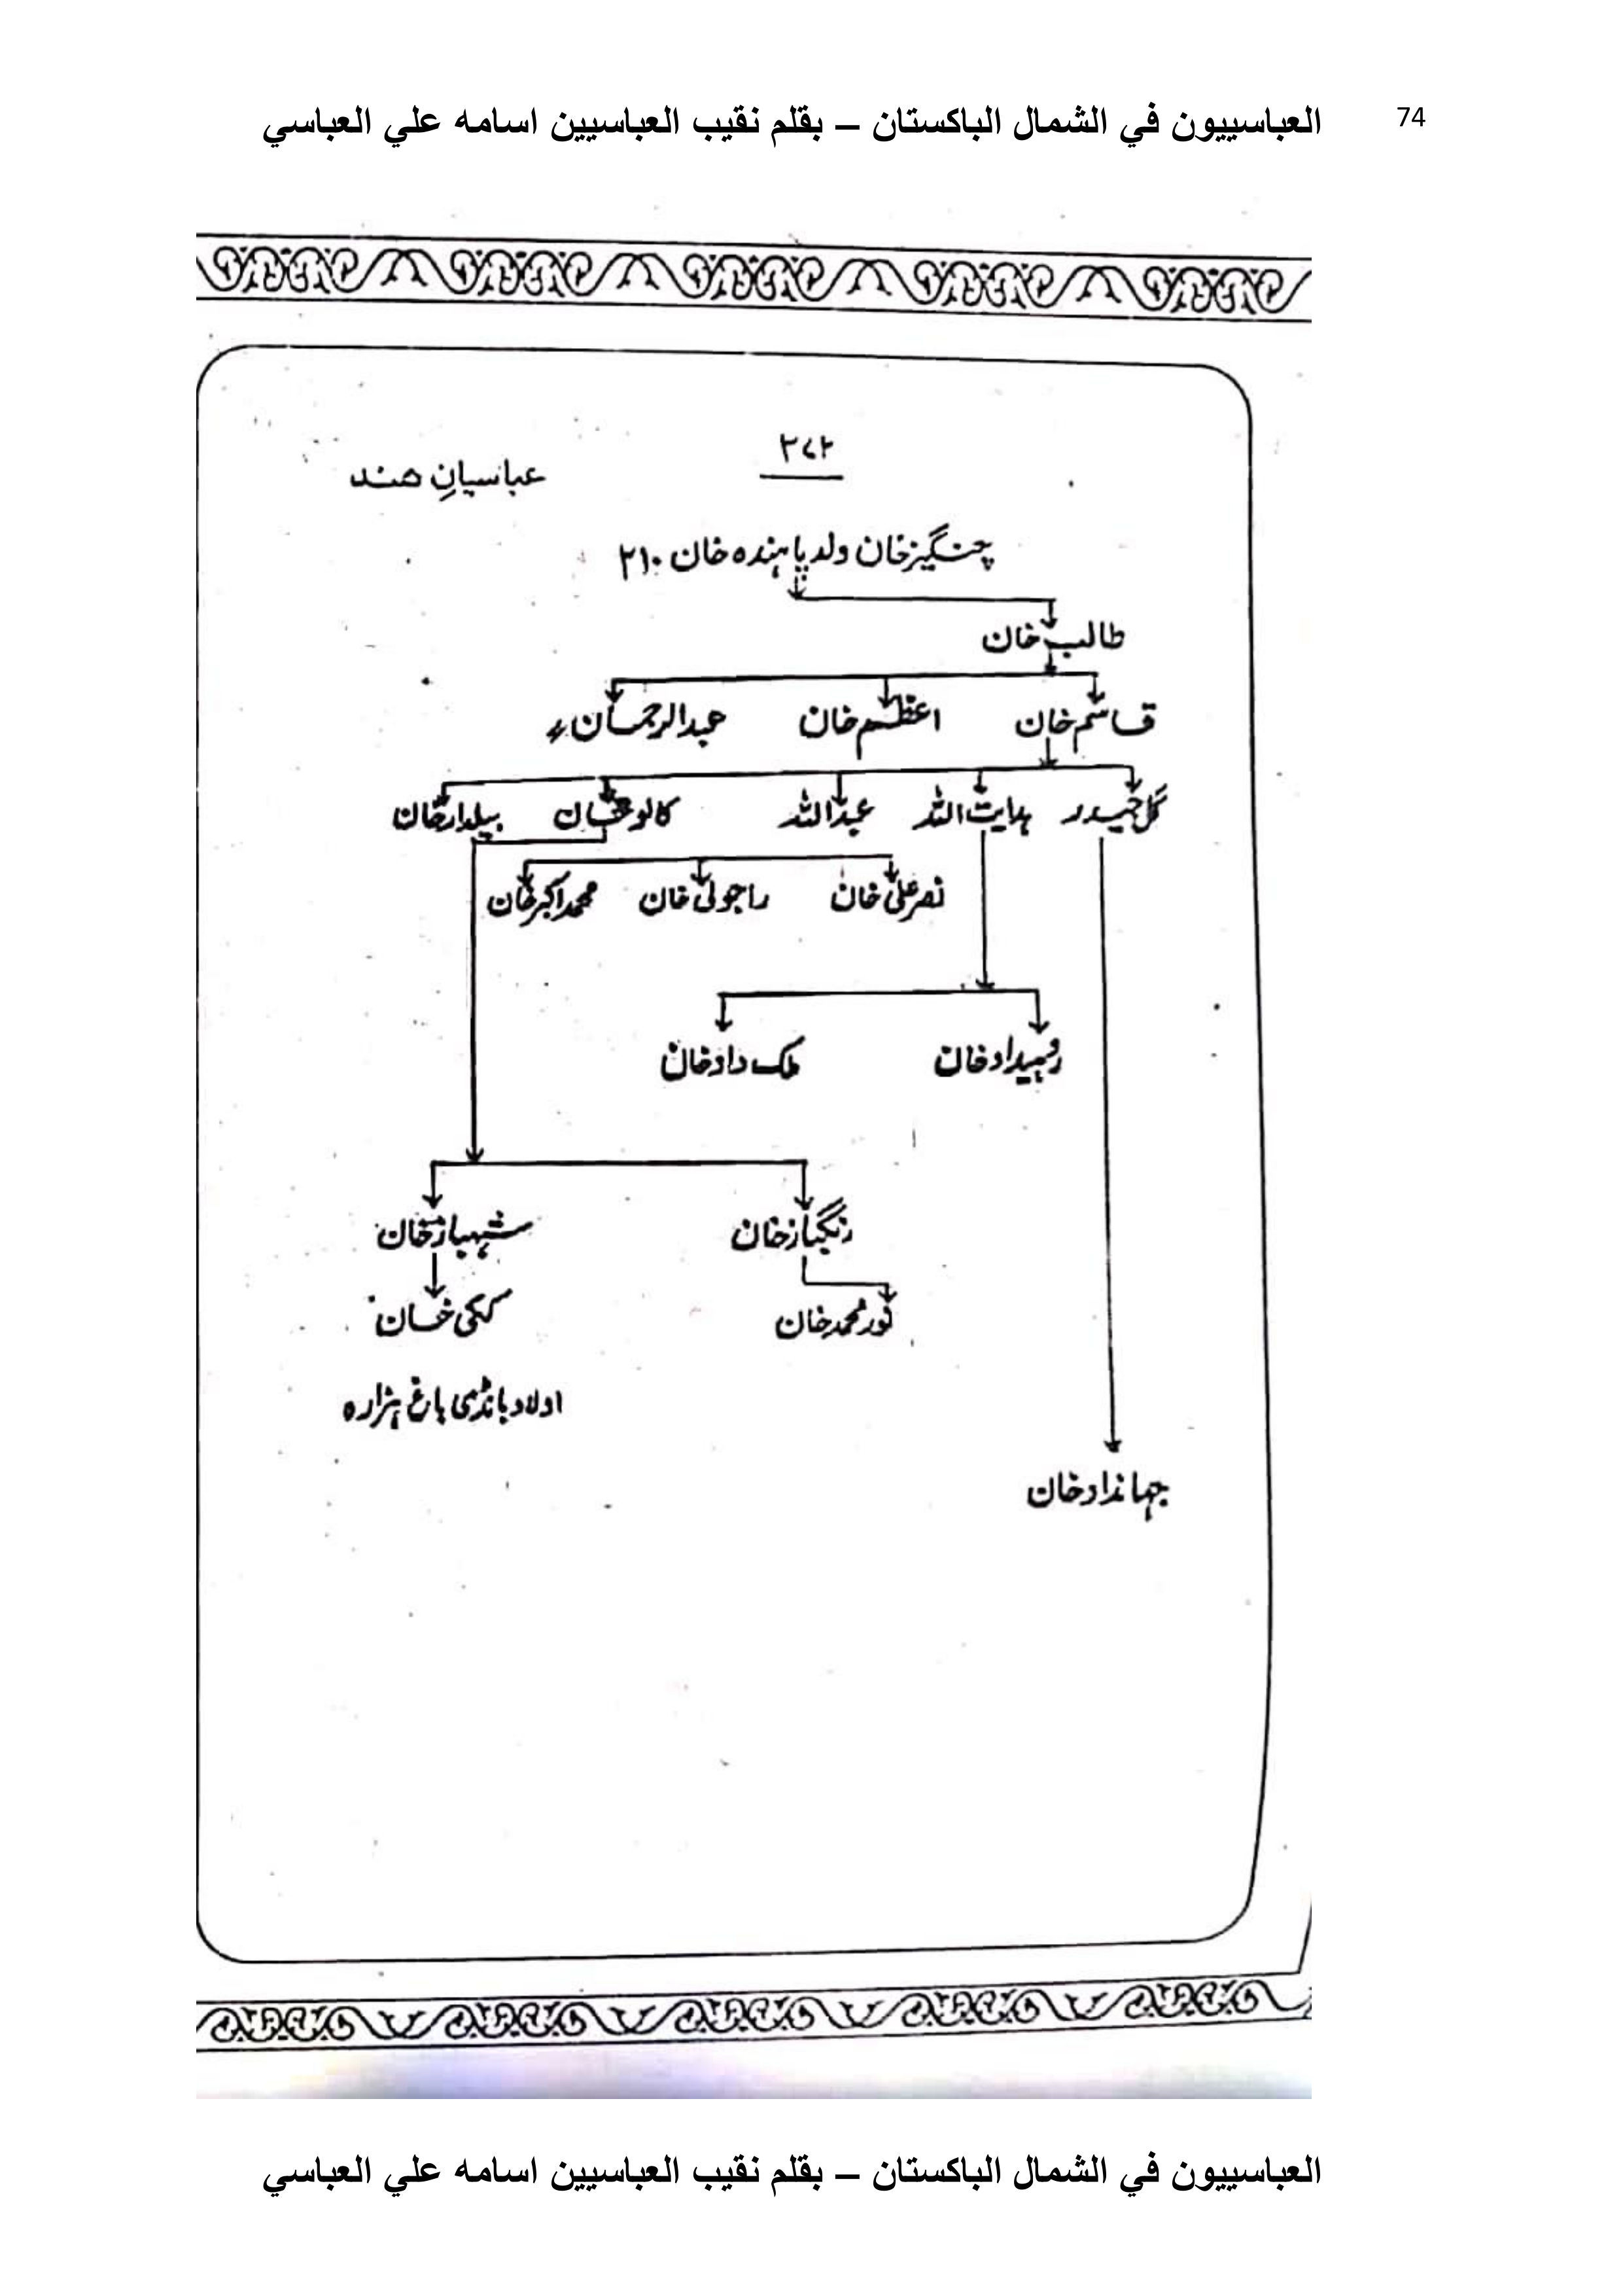 74
العباسييون في الشمال الباكستان – بقلم نقيب العباسيين اسامه علي العباسي
۲۷۲
عباسیانِ ھند
چنگیزخان ولد پاہندہ خان ۲۱۰
طالب خان
قاسم خان اعظم خان عبدالرحمان
گل حیدر ہدایت اللہ عبداللہ کالوخان بیلدارخان
نصرعلی خان راجولی خان محمداکبرخان
ملک دادخان
رنگبازخان شہبازخان
نورمحمدخان ککی خان
اولاد بانڈی باغ ہزارہ
جہاندادخان
العباسييون في الشمال الباكستان – بقلم نقيب العباسيين اسامه علي العباسي